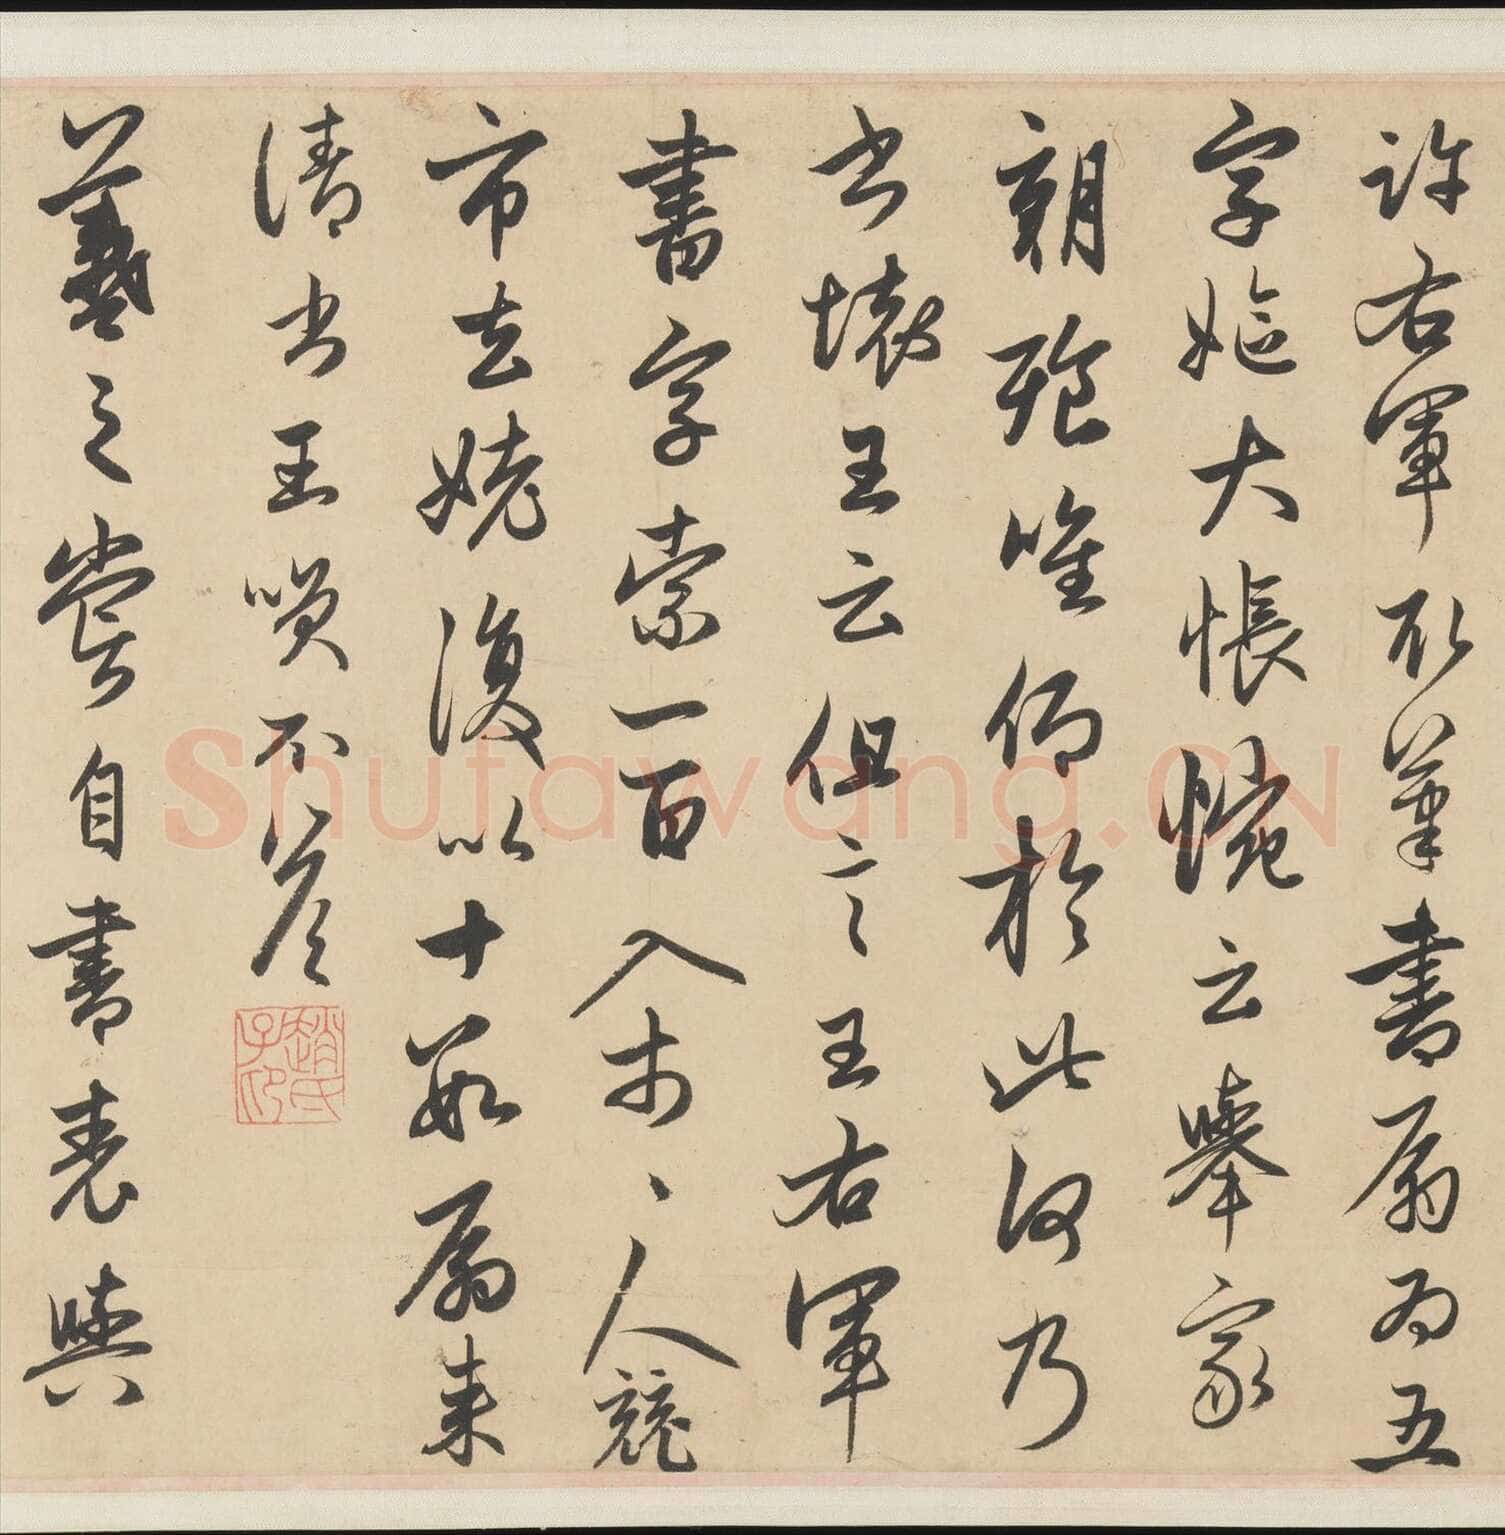 許右軍取筆書扇為五
字嫗大悵惋云舉家
朝飱唯仰於此何乃
書壞王云但言王右軍
書字索一百入市〻人競
市去嫗復以十數扇来
請書王笑不答
羲之嘗自書表與
趙氏子印
Shufawang.CN